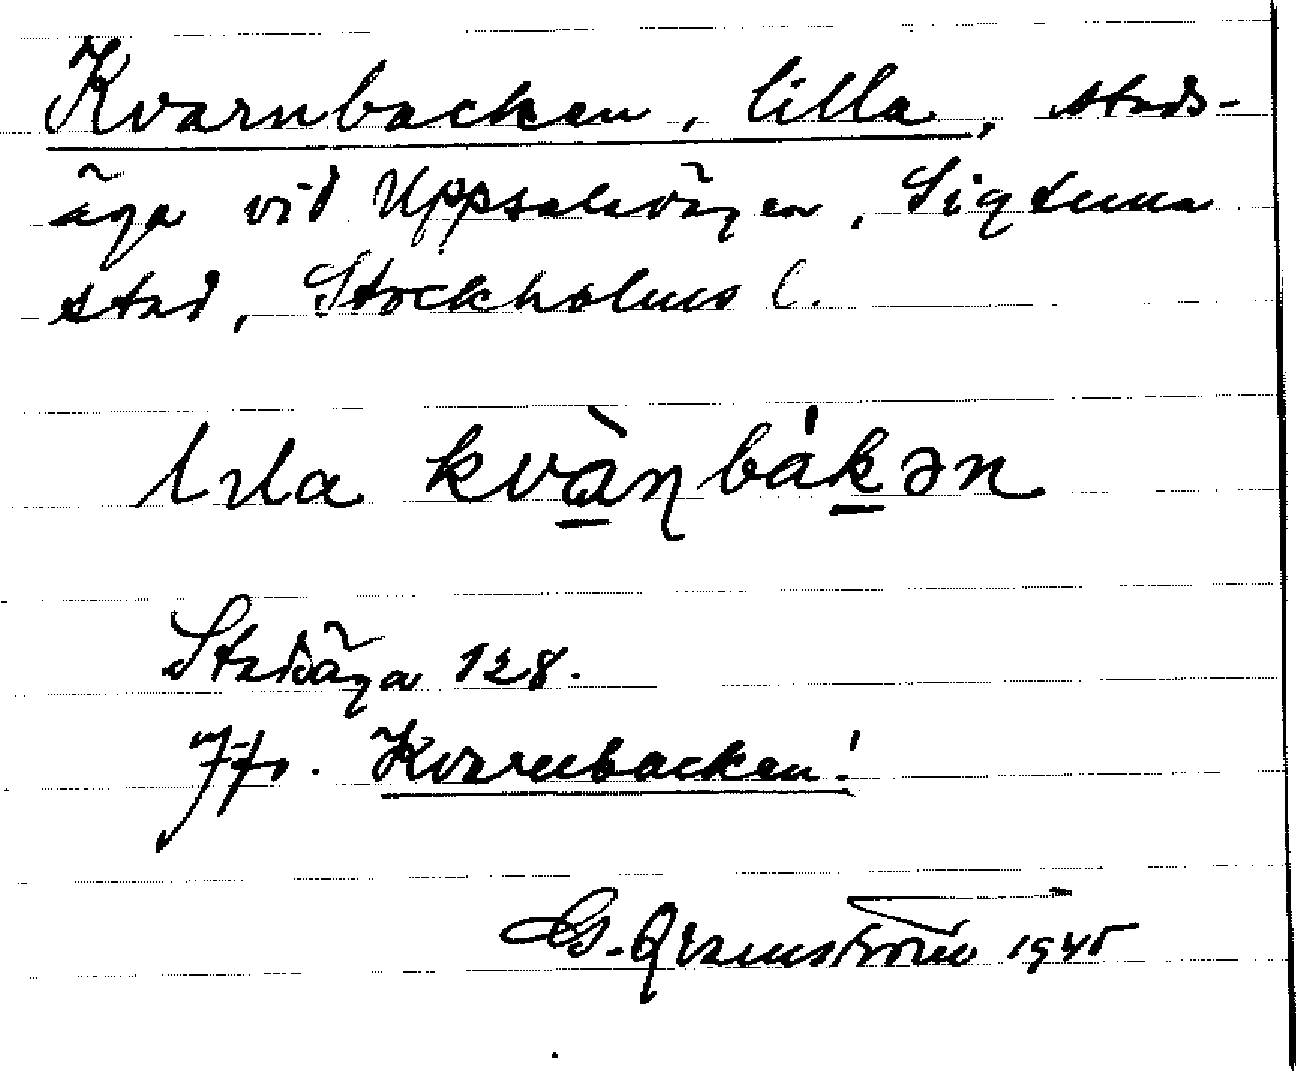 Kvarnbacken, lilla, stads-
äga vid Uppsalavägen, Sigtuna
stad, Stockholms l.
lɪla kvàɳbákən
Stadsäga 128.
Jfr. Kvarnbacken!
G. Qvarnström 1945